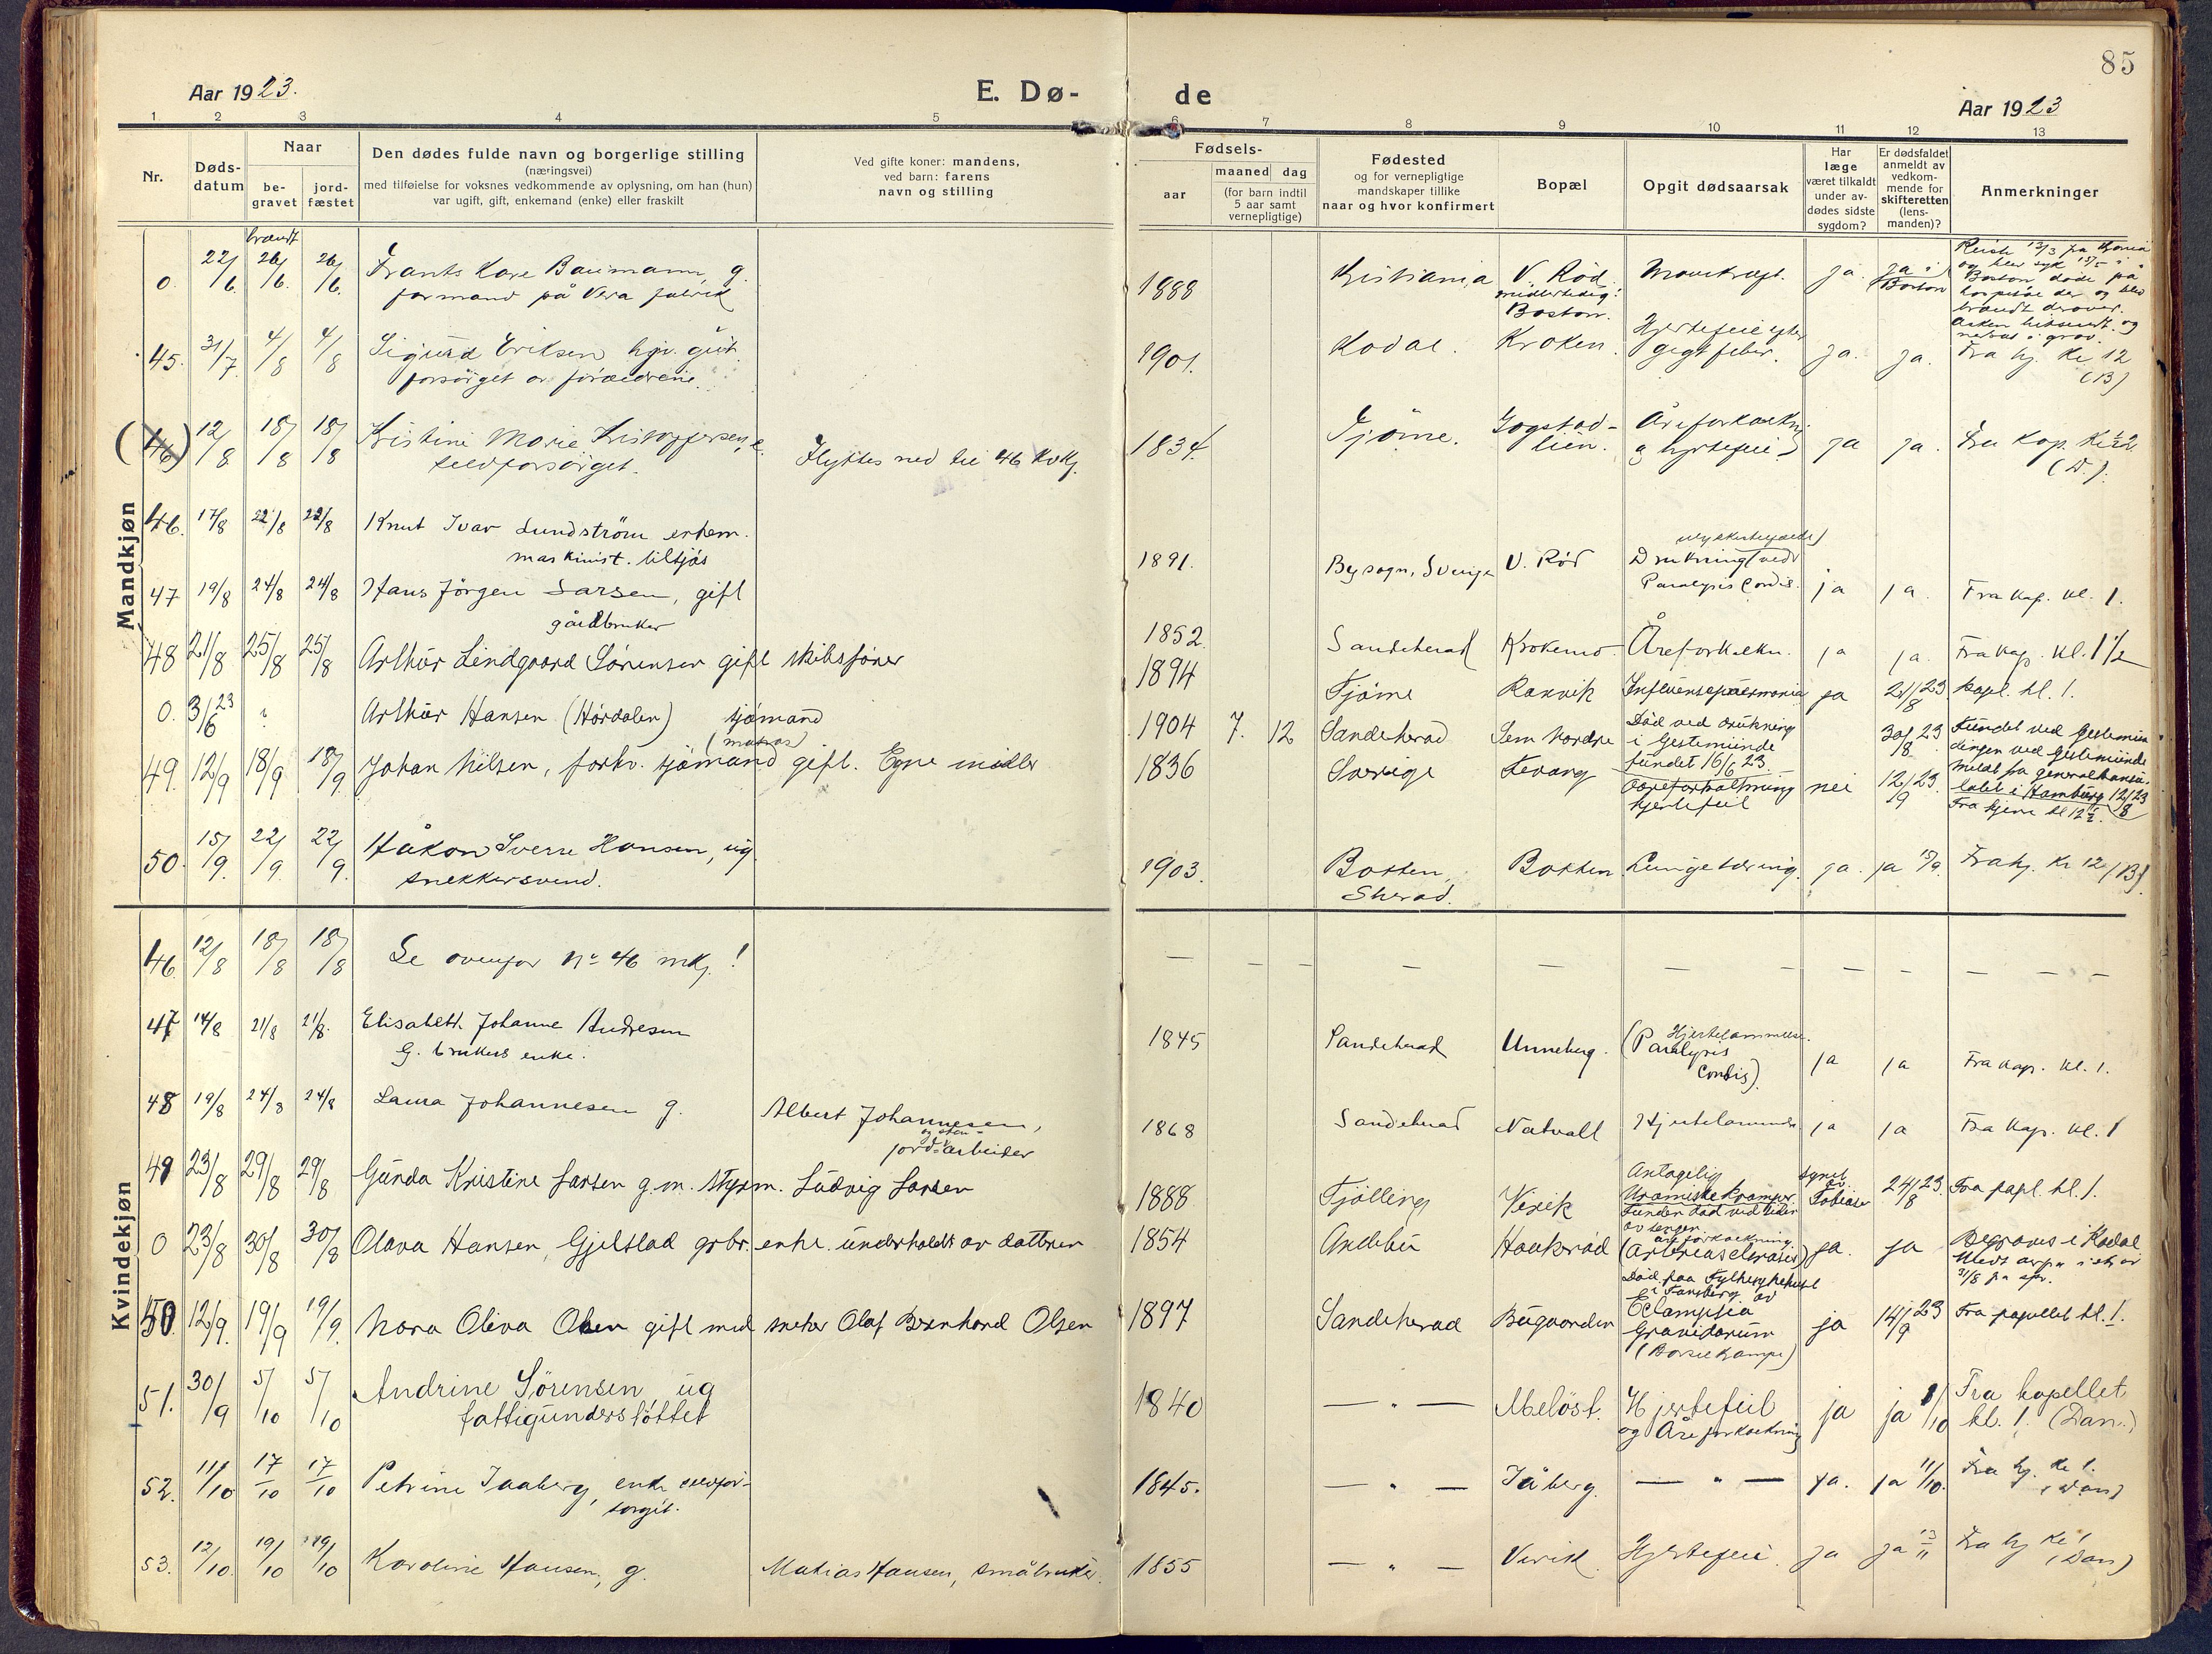 85
Aar 1923.
E. Dø-
de
Aar 1923
1 2 3 4 5 6 7 8 9 10 11 12 13
Nr.
Døds-
datum
Naar
be-
gravet
jord-
fæstet
Den dødes fulde navn og borgerlige stilling
(næringsvei)
med tilføielse for voksnes vedkommende av oplysning, om han (hun)
var ugift, gift, enkemand (enke) eller fraskilt
Ved gifte koner: mandens,
ved barn: farens
navn og stilling
Fødsels-
aar
maaned dag
(for barn indtil
5 aar samt
vernepligtige)
Fødested
og for vernepligtige
mandskaper tillike
naar og hvor konfirmert
Bopæl
Opgit dødsaarsak
Har
læge
været tilkaldt
under av-
dødes sidste
sygdom?
Er dødsfaldet
anmeldt av
vedkom-
mende for
skifteretten
(lens-
manden)?
Anmerkninger
Mandkjøn
brændt
0. 22/6. 26/6. 26/6. Frants Baumann, g. 1888 Kristiania V. Rød ja. ja i
formand på Vera fabrik midlertidig: Boston
Boston.
og blev syk 15/5 i
Boston døde på
hospital der og blev
brændt derover.
Asken hitsendt og
nedsat i grav.
45. 31/7. 4/8 4/8 Sigurd Eriksen 1901. Kodal. Kroken. Hjertefeil efter ja. ja. Fra hj. kl 12
forsørget av forældrene. gigtfeber. (B)
(46) 12/8 18/8 18/8 Kristine Marie Kristoffersen, e. Flyttes ned til 46 Kvkj. 1834. Tjöme. Gogstad- Åreforkalkn. ja ja. Fra Kap. Kl 12
selvforsørget. lien. og hjertefeil (D.).
46. 17/8 22/8 22/8 Knut Ivar Lundström 1891. By sogn, Sverige V. Rød Drukning ved ja ja. Fra kap. kl. 1.
maskinist. tilsjøs Paralysis Cordis.
47 19/8 24/8 24/8 Hans Jörgen Larsen, gift 1852. Sandeherad Krokemo. Åreforkalkn. ja ja. Fra kap. kl. 1 1/2
gårdbruker
48 21/8 25/8 25/8 Arthur Lindgaard Sørensen gift skibsfører 1894 Tjöme Ranvik Influensapneumonia ja 21/8 23 kapl. kl. 1.
0. 3/6 23 ? Arthur Hansen (Hørdalen) sjømand 1904 7. 12 Sandeherad Sem nordre Död ved drukning 30/8 23 Fundet ved
(matros) i Gestemünde
fundet 16/6 23.
dingen ved Gestemünde
meldt fra generalkonsu-
latet i Hamburg 12/8 23
49. 12/9 18/9 18/9 Johan Nilsen, forhv. sjømand gift. Egne midler 1836 Sverige Fevang Åreforkalkning nei 12/9 23. Fra hjem kl 12 1/2.
hjertefeil
50. 15/9. 22/9. 22/9. Håkon Sverre Hansen, ug. 1903. Botten, Botten Lungetæring. ja. ja 15/9. Fra hj. kl 12 (B)
snekkersvend. Sherad.
Kvindekjøn
46. 12/8 18/8 18/8 Se ovenfor No 46 mkj! — — — — — — — — — — — —
47 14/8 21/8 21/8. Elisabeth Johanne Andresen 1845 Sandeherad Unneberg. (Paralysis Hjertelammelse. ja ja Fra kap. kl. 1.
G. brukers enke. Cordis).
48 19/8 24/8 24/8 Laura Johannesen g. Albert Johannesen, 1868 Sandeherad Natvall Hjertelammelse ja ja Fra kap. kl. 1
og sten-
jord-arbeider
49 23/8 29/8 29/8 Gunda Kristine Larsen g.m. styrm. Ludvig Larsen 1888 Tjölling Virik Antagelig synet 24/8 23. Fra kapl. kl. 1.
Uræmiske kramper. av
Funden död ved siden Tobiase
av sengen.
0 23/8 30/8 30/8 Olava Hansen, Gjelstad grbr. enke. underholdt av datteren 1854 Andebu Haukerød åreforkalkning. ja. ja Begraves i Kodal
31/8
50. 12/9. 19/9 19/9. Nora Oliva Olsen gift med Olaf Bernhard Olsen 1897 Sandeherad Bugaarden Död paa Fylkessykehuset ja 14/9 23 Fra kapellet kl. 1.
i Tønsberg av
Eclampsia
Gravidarum
51. 30/9 5/10 5/10 Andrine Sørensen ug 1840 — " — Meløst. Hjertefeil ja ja 1/10 Fra kapellet
fattigunderstøttet og Åreforkalkning kl. 1. (Dan.)
52. 11/10 17/10 17/10 Petrine Jaaberg, enke selvfor- 1845. — " — Jåberg. — " — ja. ja 11/10. Fra hj. kl 1.
sørget. (Dan)
53. 12/10. 19/10 19/10 Karoline Hansen, g. Matias Hansen, småbruker. 1855 — " — Virik. Hjertefeil. ja ja 13/11 Fra hj kl 1
(Dan)